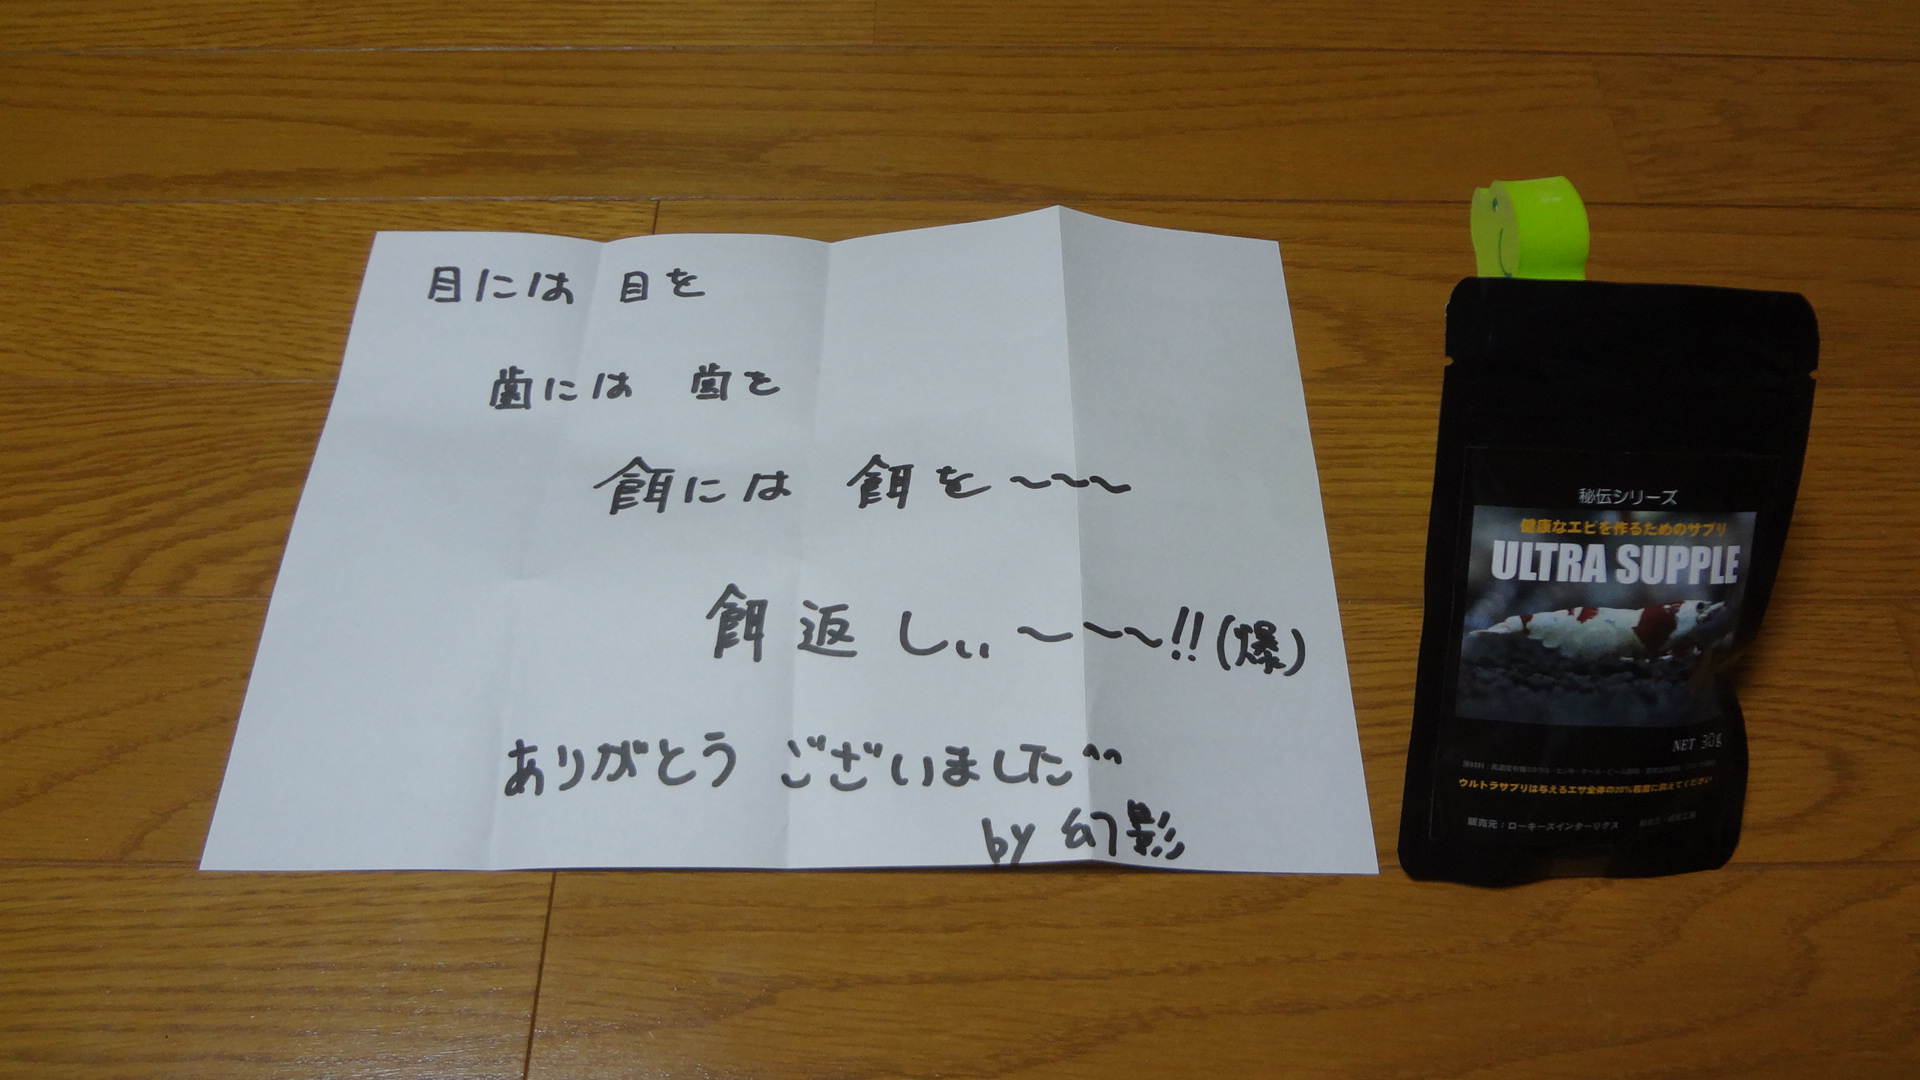 目には 目を
歯には 歯を
餌には 餌を～～～
餌返しぃぃ～～～!!(爆)
ありがとう ございました^^
by 幻影
秘伝シリーズ
健康なエビを作るためのサプリ
ULTRA SUPPLE
NET 30g
ウルトラサプリは与えるエサ全体の20%程度に抑えてください
販売元：ローキーズインターリクス